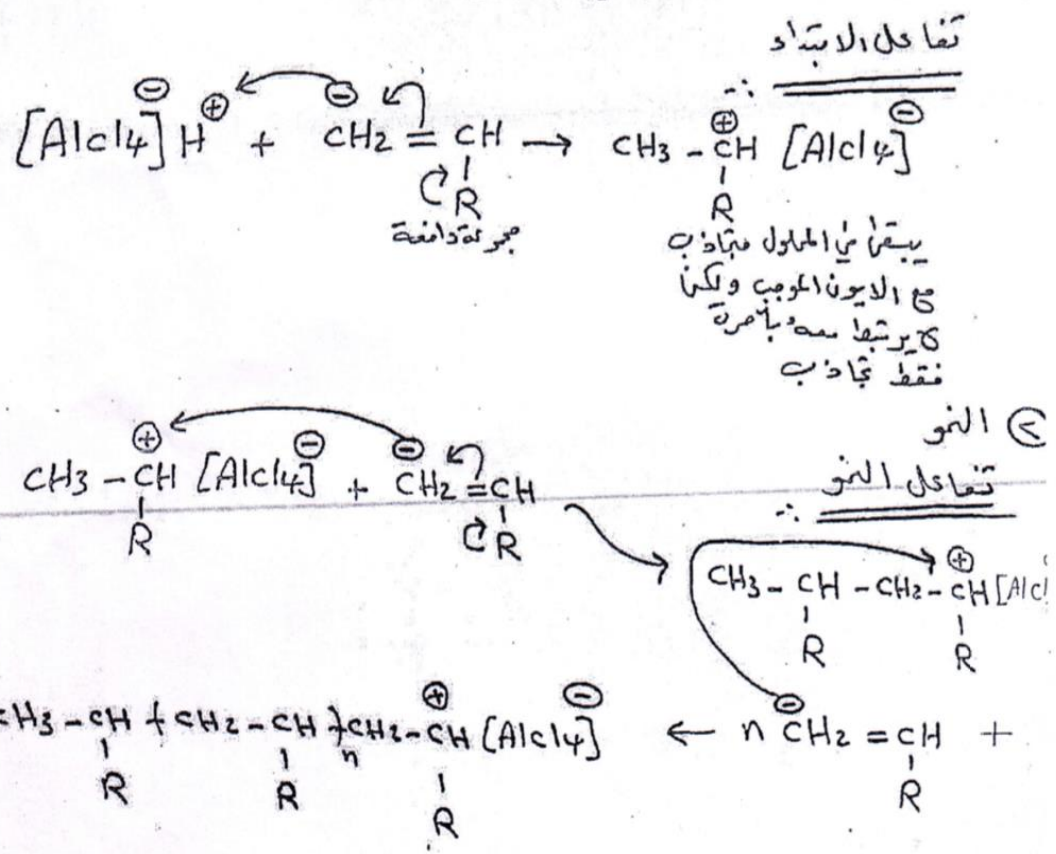 تفاعل الابتداء :.
[AlCl4]⊖ H⊕ + ⊖CH2 = CH → CH3 - ⊕CH [AlCl4]⊖
R R
مجموعة دافعة
يبقى في المحلول متجاذب
مع الايون الموجب ولكن
لا يرتبط معه بآصرة
فقط تجاذب
② النمو
تفاعل النمو :.
CH3 - ⊕CH [AlCl4]⊖ + ⊖CH2 = CH
R R
CH3 - CH - CH2 - ⊕CH [AlCl
R R
+ n ⊖CH2 = CH ←
R
CH3 - CH ( CH2 - CH )n CH2 - ⊕CH [AlCl4]⊖
R R R